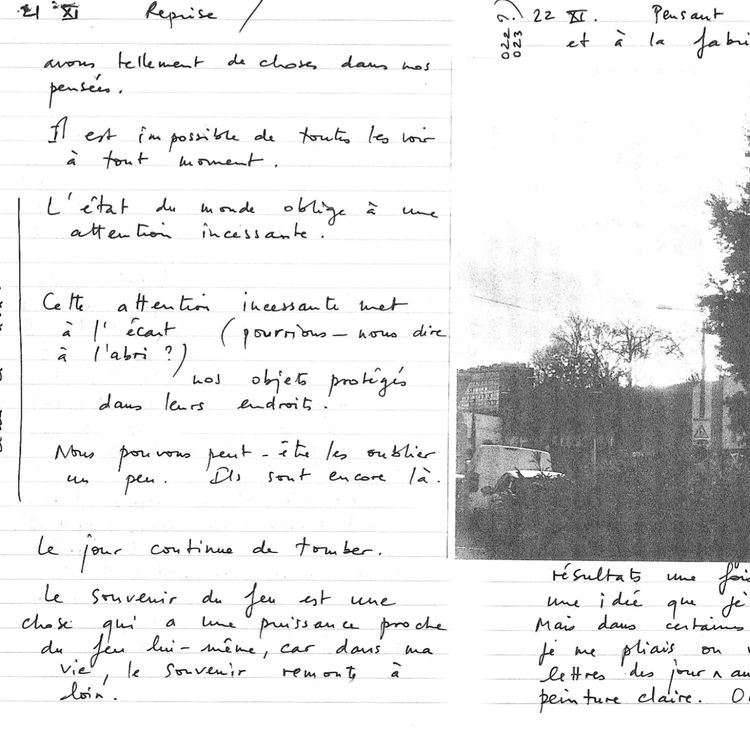 21 XI Reprise /
avons tellement de choses dans nos
pensées.
Il est impossible de toutes les voir
à tout moment.
L'état du monde oblige à une
attention incessante.
Cette attention incessante met
à l'écart (pourrions-nous dire
à l'abri ?)
nos objets protégés
dans leurs endroits.
Nous pouvons peut-être les oublier
un peu. Ils sont encore là.
Le jour continue de tomber.
Le souvenir du feu est une
chose qui a une puissance proche
du feu lui-même, car dans ma
vie, le souvenir remonte à
loin.
022 ?)
023
22 XI. Pensant
et à la fabri
résultats une foi
une idée que je
Mais dans certains
je me pliais ou
lettres des jour
peinture claire. O